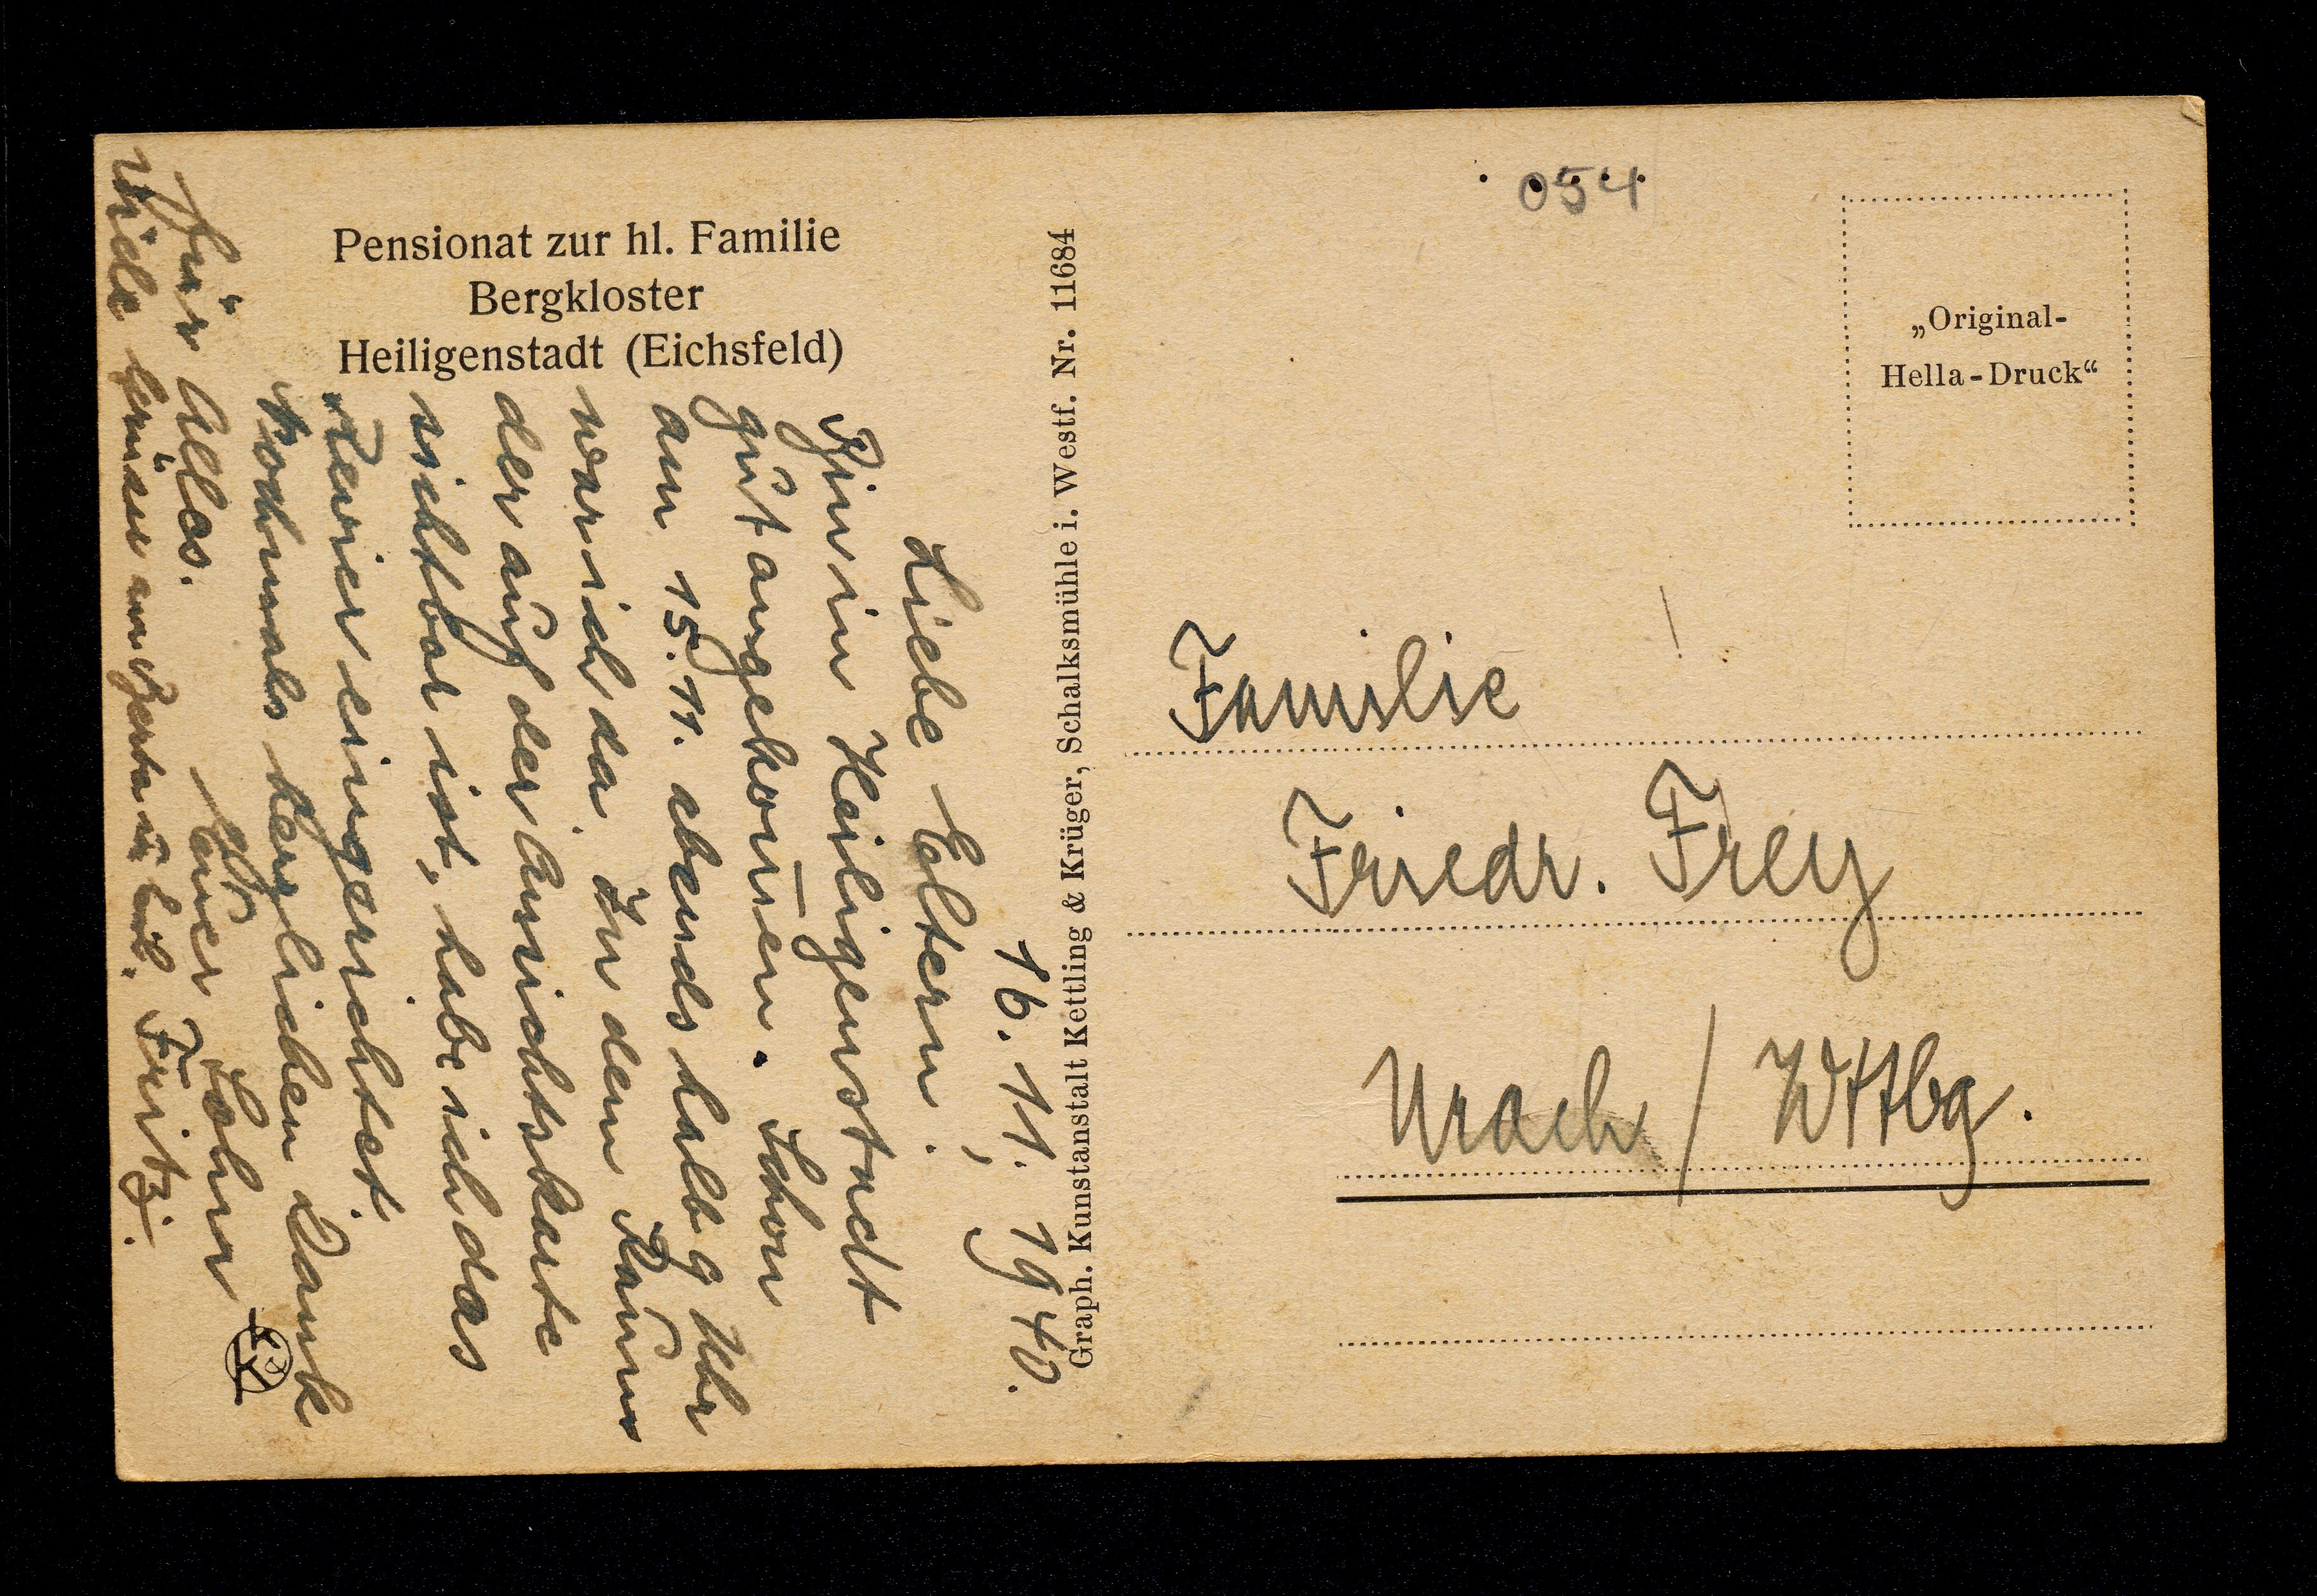 Pensionat zur hl. Familie
Bergkloster
Heiligenstadt (Eichsfeld)
16. 11. 1940.
Liebe Eltern,
Bin in Heiligenstadt
gut angekom̅en. Schon
am 15. 11. abends halb 9 Uhr
war ich da. In dem Raum
der auf der Ansichtskarte
sichtbar ist, habe ich das
Revier eingerichtet.
Nochmals herzlichen Dank
für Alles.
Euer Sohn
Viele Grüsse an Berta u. Fritz.
Graph. Kunstanstalt Kettling & Krüger, Schalksmühle i. Westf. Nr. 11684
054
„Original-
Hella-Druck“
Familie
Friedr. Frey
Urach / Wttbg.